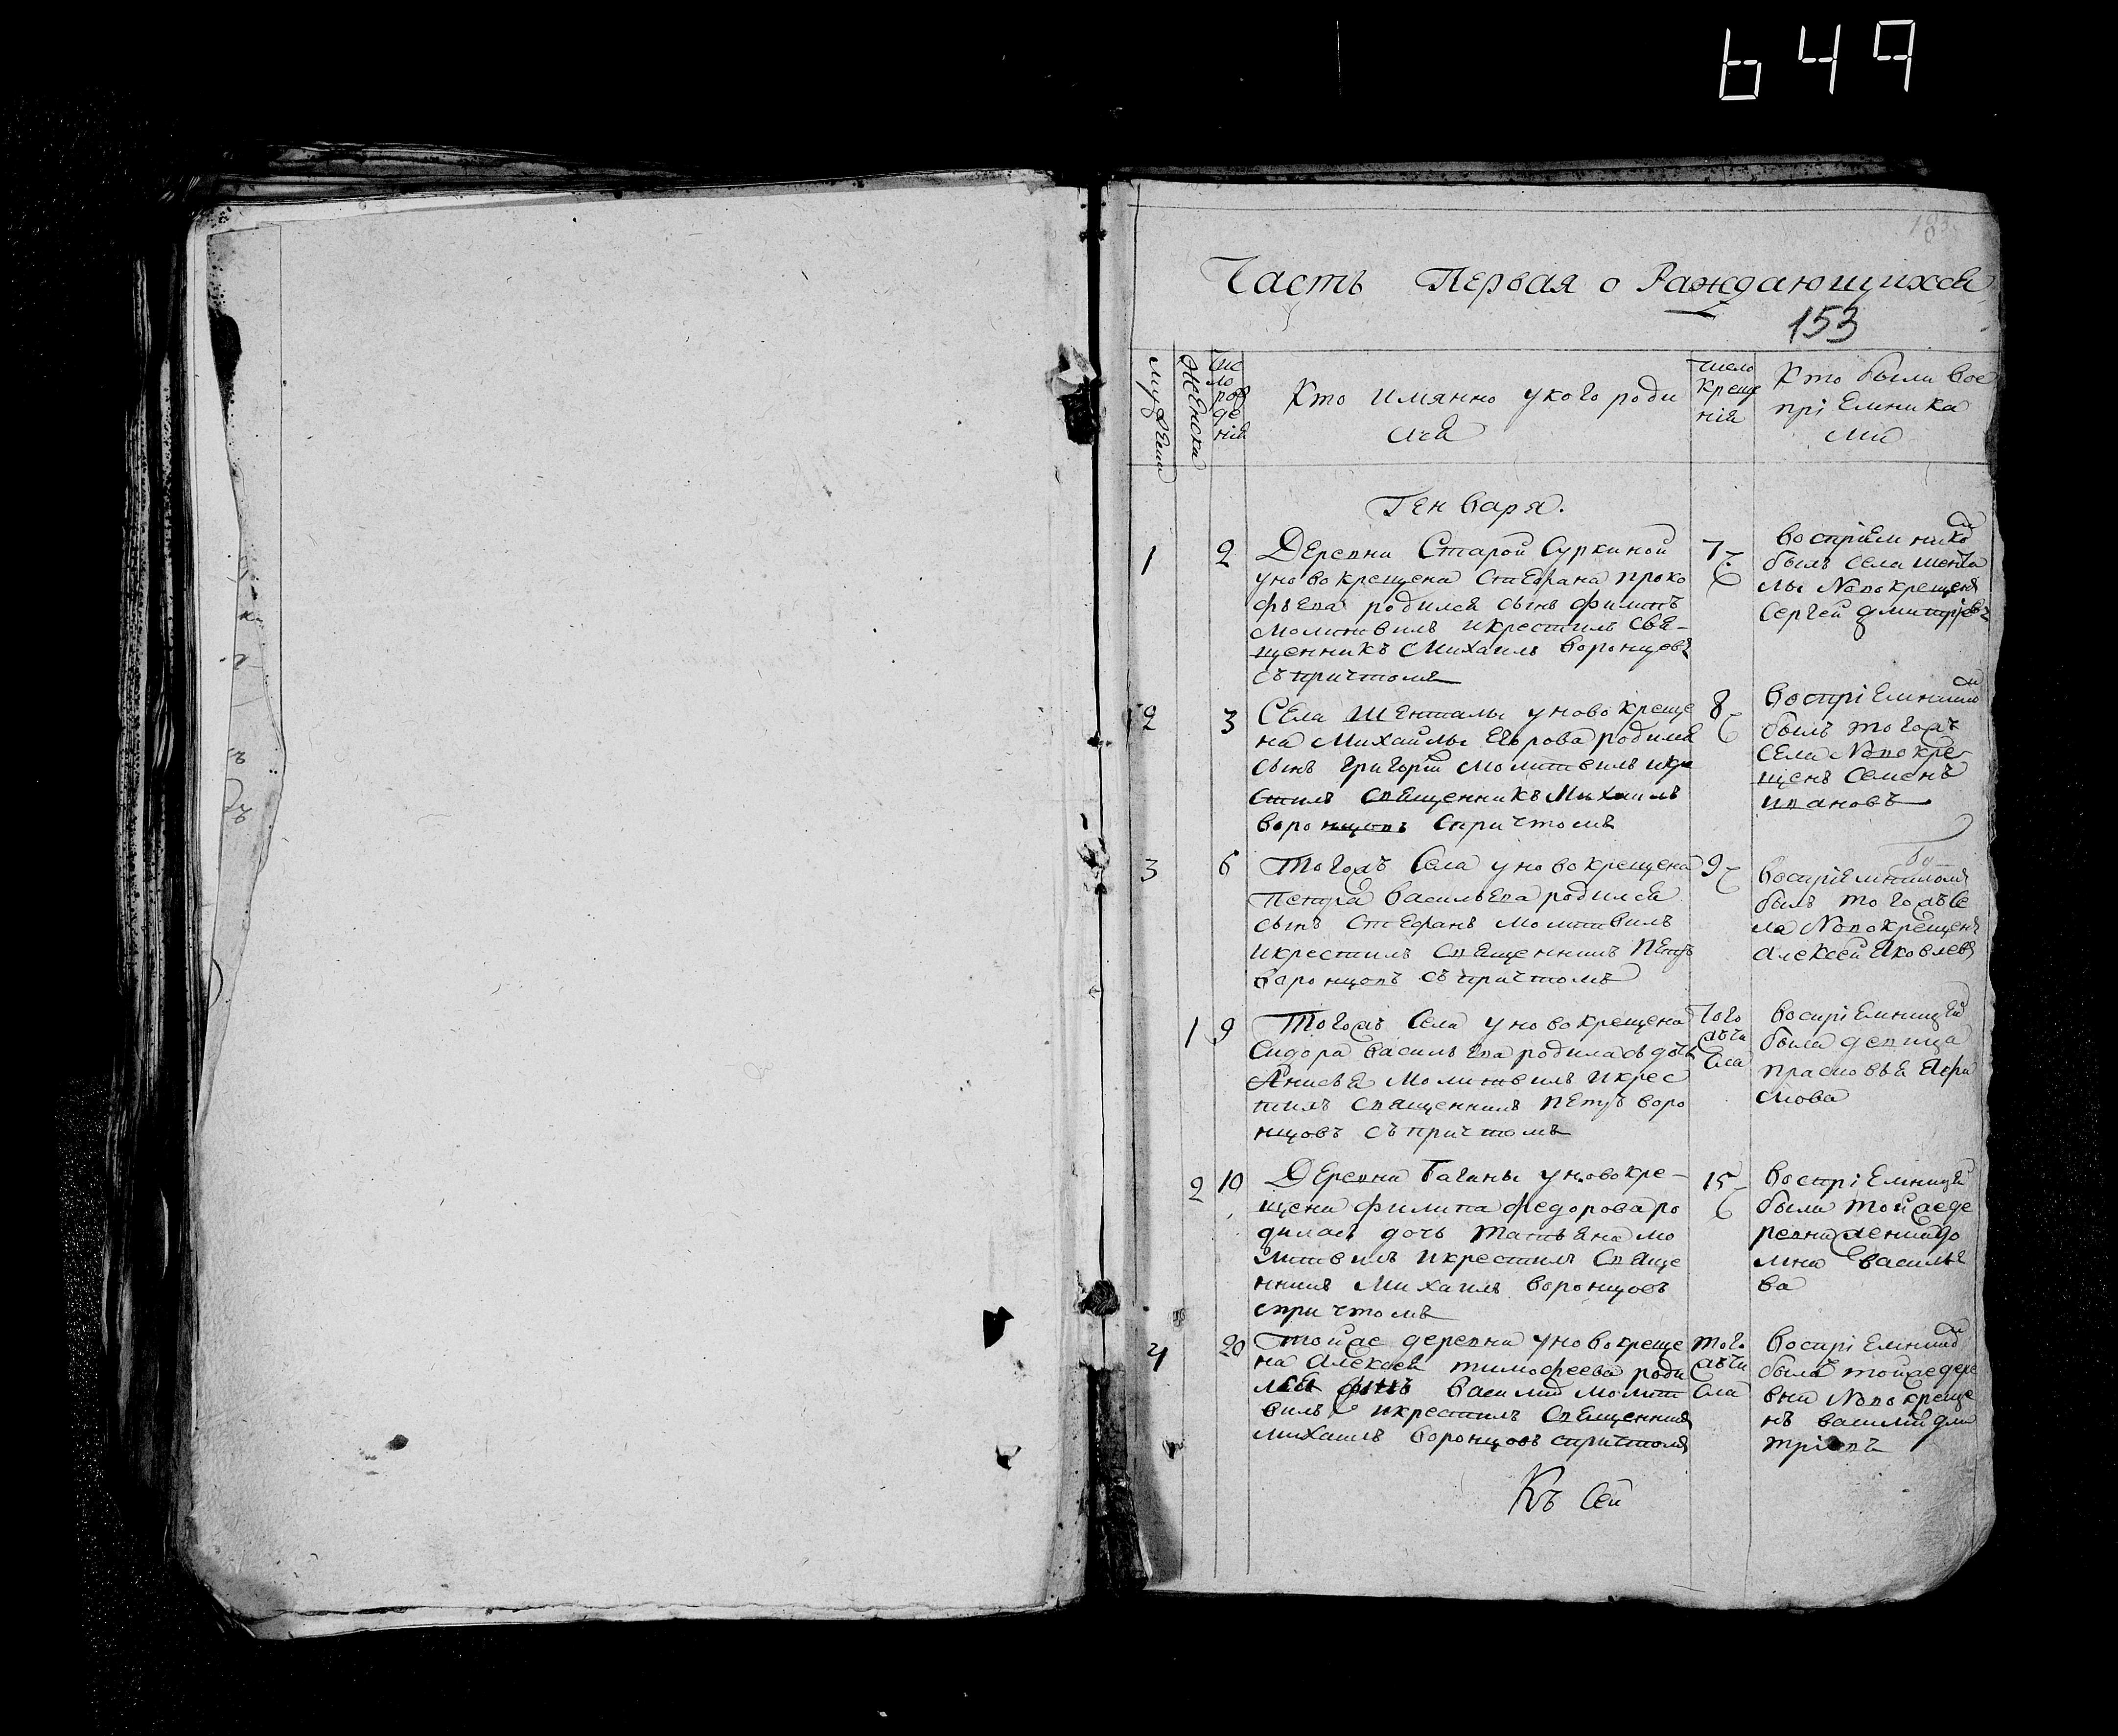 649
Часть Первая о Раждающихся
153
мужеска
женска
чис
ло
рож
де
нія
Кто имянно у кого роди
лся
число
креще
нія
Кто были вос
пріемника
ми
Генваря.
1 2 Деревни Старой Суркиной
уновокрещена Стефана проко
фьева родился сынъ филипъ
молитвилъ икрестилъ Свя-
щенникъ Михаилъ Воронцовъ
съ причтомъ
7
воспріемником
былъ Села шента
лы Новокрещенъ
Сергей дмитріевъ
2 3 Села Шенталы уновокреще
на Михайлы Егорова родился
сынъ григорій молитвилъ икре
стилъ Священникъ Михаилъ
воронцовъ спричтомъ
8
воспріемником
былъ тогожъ
Села Новокре
щенъ Семенъ
ивановъ
3 6 Тогожъ Села уновокрещена
Петра васильева родился
сынъ Стефанъ молитвилъ
икрестилъ Священникъ Петръ
воронцовъ съ причтомъ
9
воспріемником
былъ тогожъ Се
ла Новокрещенъ
алексей Яковлевъ
1 9 Тогожъ Села уновокрещена
Сидора васильева родилась дочь
Анисья молитвилъ икрес
тилъ священникъ Петръ воро
нцовъ съ причтомъ
Того
жъ чи
сла
воспріемницей
была девица
прасковья
2 10 Деревни Баганы уновокре-
щена филипа федорова ро
дилась дочь татьяна мо
литвилъ икрестилъ Свяще
нникъ Михаилъ воронцовъ
спричтомъ
15
воспріемницей
была тойже де
ревни
васильe
ва
4 20 тойже деревни уновокреще
на алексея тимофеева роди
лся сынъ василій молит
вилъ икрестилъ Священникъ
михаилъ воронцовъ спричтомъ
того
жъ чи
сла
воспріемником
былъ тойже дере
вни Новокреще
нъ василій дми
тріевъ
Къ Сей